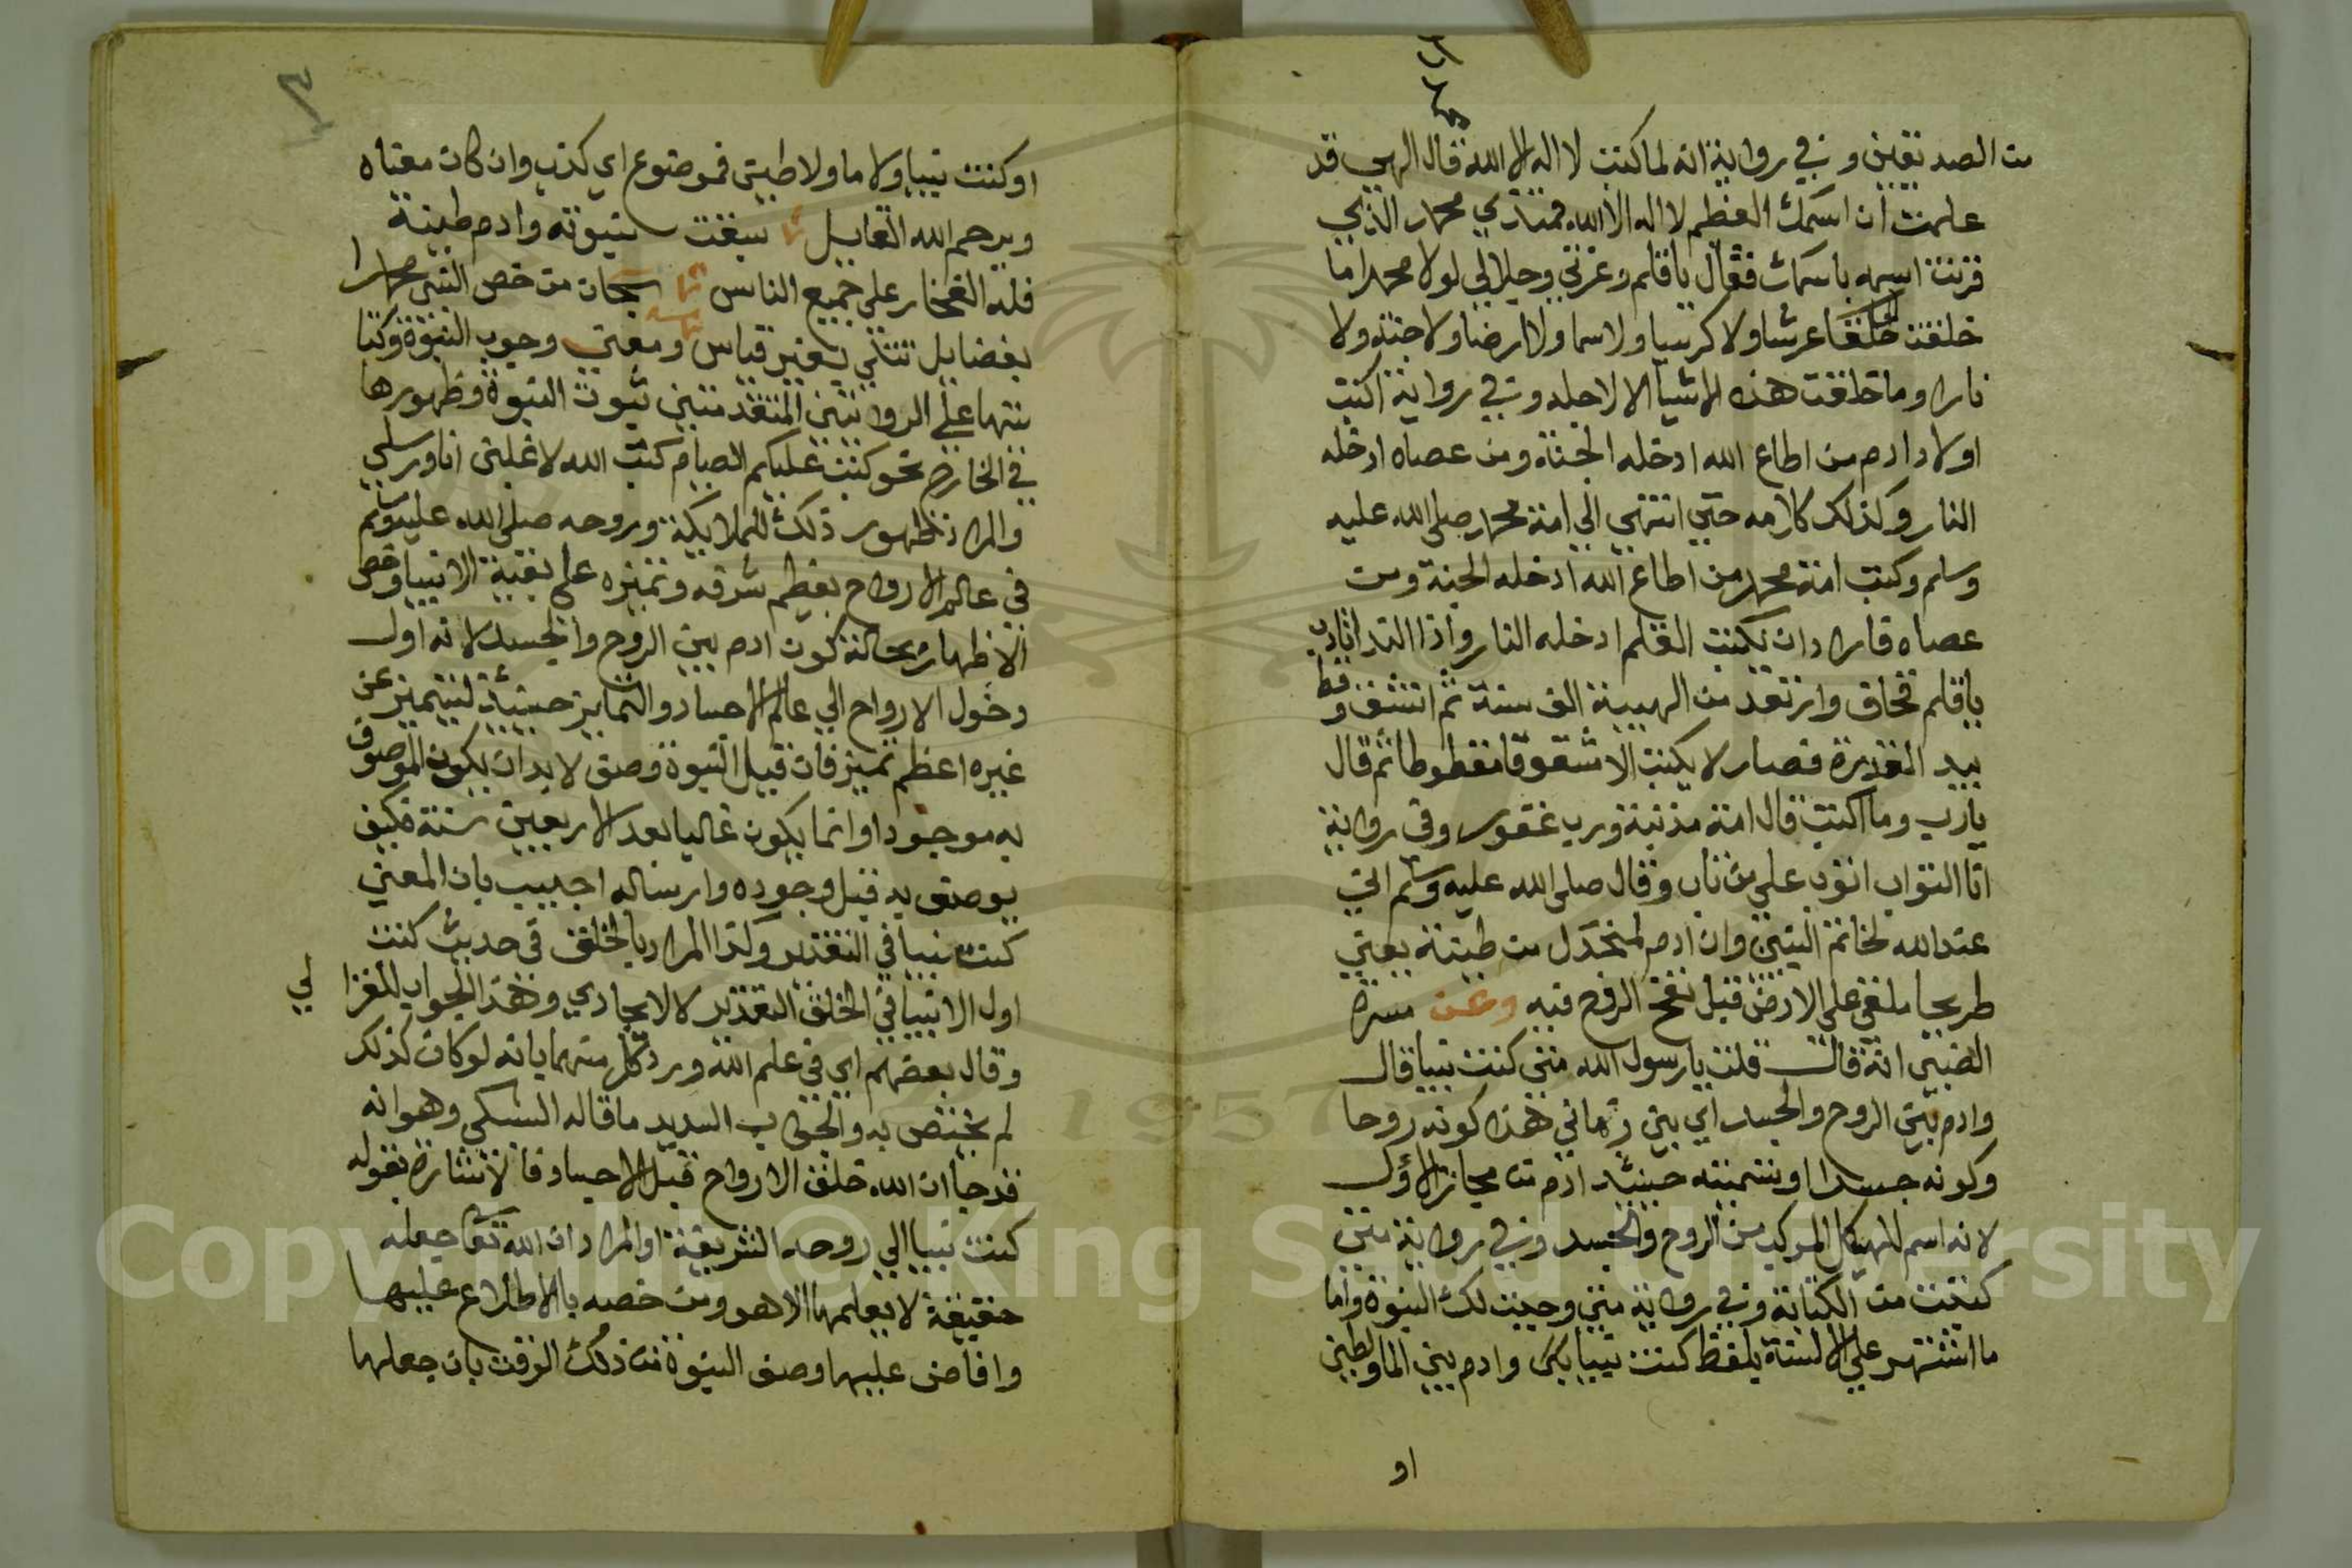 من الصديقين وفي رواية انه لما كتب لا اله الا الله قال الهي قد
علمت ان اسمك العظم لا اله الا الله فمن ذي محمد الذي
قرنت اسمه باسمك فقال يا قلم وعزتي وجلالي لولا محمدا ما
خلقت خلقا عرشا ولا كرسيا ولا سما ولا ارضا ولا جنة ولا
نارا وما خلقت هذه الاشيا الا لاجله وفي رواية اكتب
اولاد ادم من اطاع الله ادخله الجنة ومن عصاه ادخله
النار وكذلك كل امه حتي انتهي الي امة محمد صلي الله عليه
وسلم وكتب امة محمد من اطاع الله ادخله الجنة ومن
عصاه فاراد ان يكتب القلم ادخله النار واذا الندا تادب
يا قلم فخاف وارتعد من الهيبة الف سنة ثم انشق وقط
بيد القدرة فصار لا يكتب الا مشقوقا مقطوطا ثم قال
يارب وما اكتب قال امة مذنبة ورب غفور وفي رواية
انا التواب اتوب علي من تاب وقال صلي الله عليه وسلم اني
عند الله لخاتم النبين وان ادم لمنجدل من طينته يعني
طريحا ملقي علي الارض قبل نفخ الروح فيه وعن ميسرة
الضبي انه قال قلت يا رسول الله متي كنت نبيا قال
وادم بين الروح والجسد اي بين زماني هذه كونه روحا
وكونه جسدا او تسميته حينئذ ادم من مجاز الاول
لانه اسم للهيكل المركب من الروح والجسد وفي رواية متي
كتبت من الكتابة وفي رواية متي وجبت لك النبوة واما
ما اشتهر علي الالسنة بلفظ كنت نبيا وادم بين الما والطين
او
او كنت نبيا ولا ما ولا طين فموضوع اي كذب وان كان معناه
ويرحم الله القايل سبقت نبوته وادم طينة
فله الفخار علي جميع الناس سبحان من خص النبي محمدا
بفضايل تتلي بغير قياس ومعني وجوب النبوة وكتا
بتها علي الروايتين المتقدمتين ثبوت النبوة وظهورها
في الخارج نحو كتب عليكم الصيام كتب الله لاغلبن انا ورسلي
والمراد ظهور ذلك للملايكة وروحه صلي الله عليه وسلم
في عالم الارواح بعظم شرفه وتميزه علي بقية الانبيا وخص
الاظهار بحالة كون ادم بين الروح والجسد لانه اول
دخول الارواح الي عالم الاجساد والتمايز حينئذ ليتميز عن
غيره اعظم تميز فان قيل النبوة وصف لا بد ان يكون الموصوف
به موجودا وانما يكون غالبا بعد الاربعين سنة فكيف
يوصف به قبل وجوده وارساله اجيب بان المعني
كنت نبيا في التقدير وكذا المراد بالخلق في حديث كنت
اول الانبيا في الخلق التقدير لا الايجادي وهذا الجواب للغزا لي
وقال بعضهم اي في علم الله ورد كل منهما بانه لو كان كذلك
لم يختص به والجواب السديد ما قاله السبكي وهو انه
قد جا ان الله خلق الارواح قبل الاجساد فالاشارة بقوله
كنت نبيا الي روحه الشريفة او المراد ان الله تعا جعله
حقيقة لا يعلمها الا هو ومن خصه بالاطلاع عليها
وافاض عليها وصف النبوة من ذلك الوقت بان جعلها
Copyright © King Saud University
1957